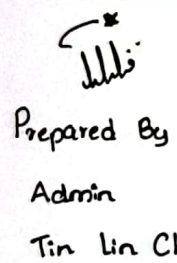 Prepared By
Admin
Tin Lin